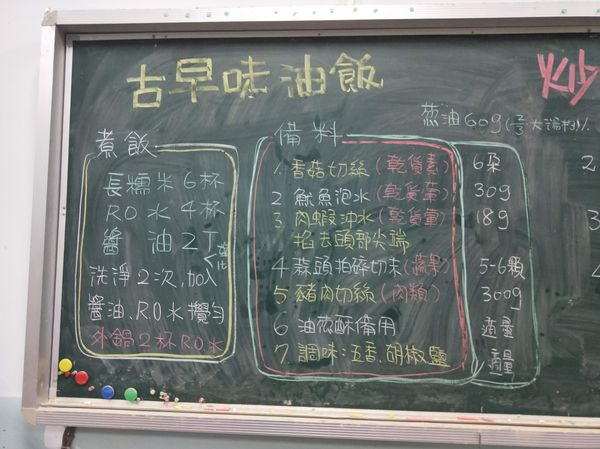 古早味油飯
炒
葱油60g
煮飯
長糯米6杯
RO水4杯
醬油2T
洗淨2次,加入
醬油、R.O水攪勻
外鍋2杯R.O水
備料
1 香菇切絲(乾貨素) 6朵
2 魷魚泡水(乾貨葷) 30g
3 肉蝦沖水(乾貨葷) 18g
掐去頭部尖端
4 蒜頭拍碎切末(蔬果) 5-6顆
5 豬肉切絲(肉類) 300g
6 油葱酥備用 適量
7 調味:五香、胡椒鹽 適量